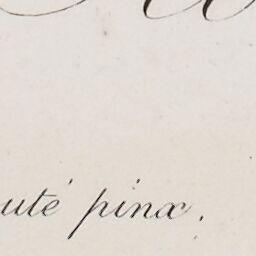 uté pinx.